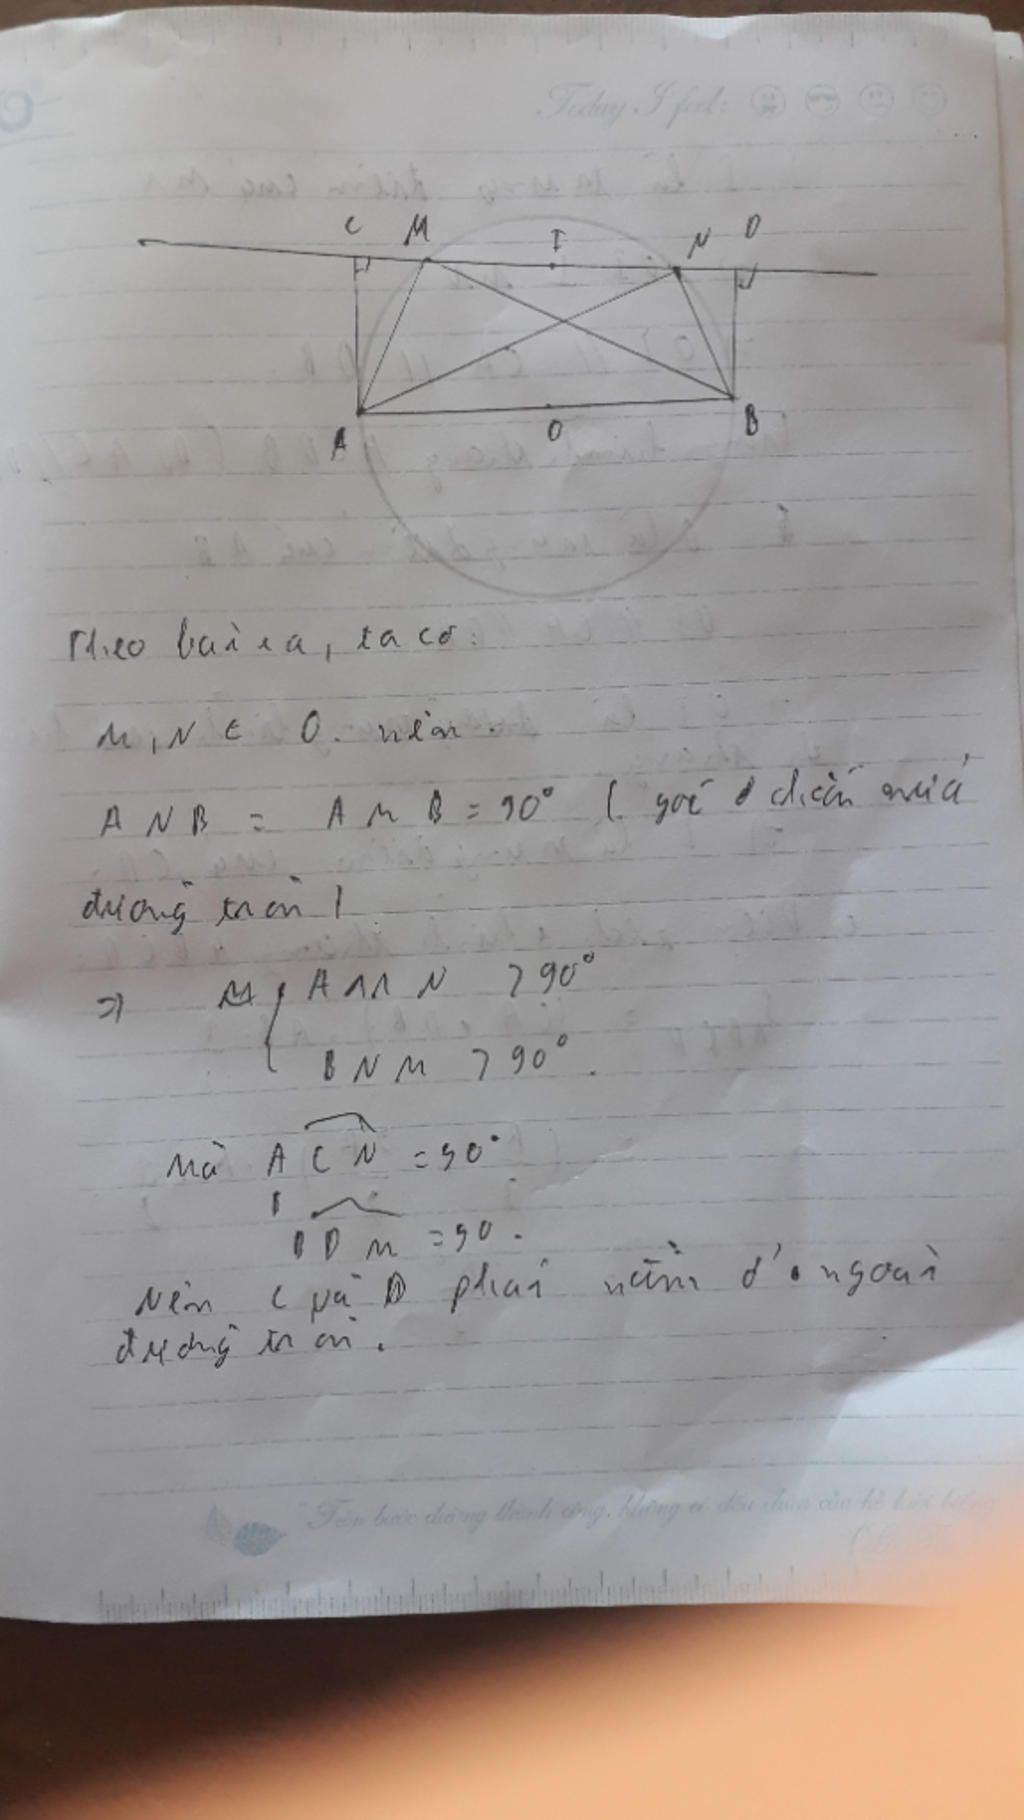 Today I feel:
C M I N D
A O B
Theo bài ra, ta có:
M, N ∈ O. nên.
ANB = AMB = 90° ( góc chắn nửa
đường tròn )
=> { AMN > 90°
BNM > 90°.
Mà ACN = 90°
BDM = 90.
Nên C và D phải nằm ở ngoài
đường tròn.
"Trên bước đường thành công, không có dấu chân của kẻ lười biếng